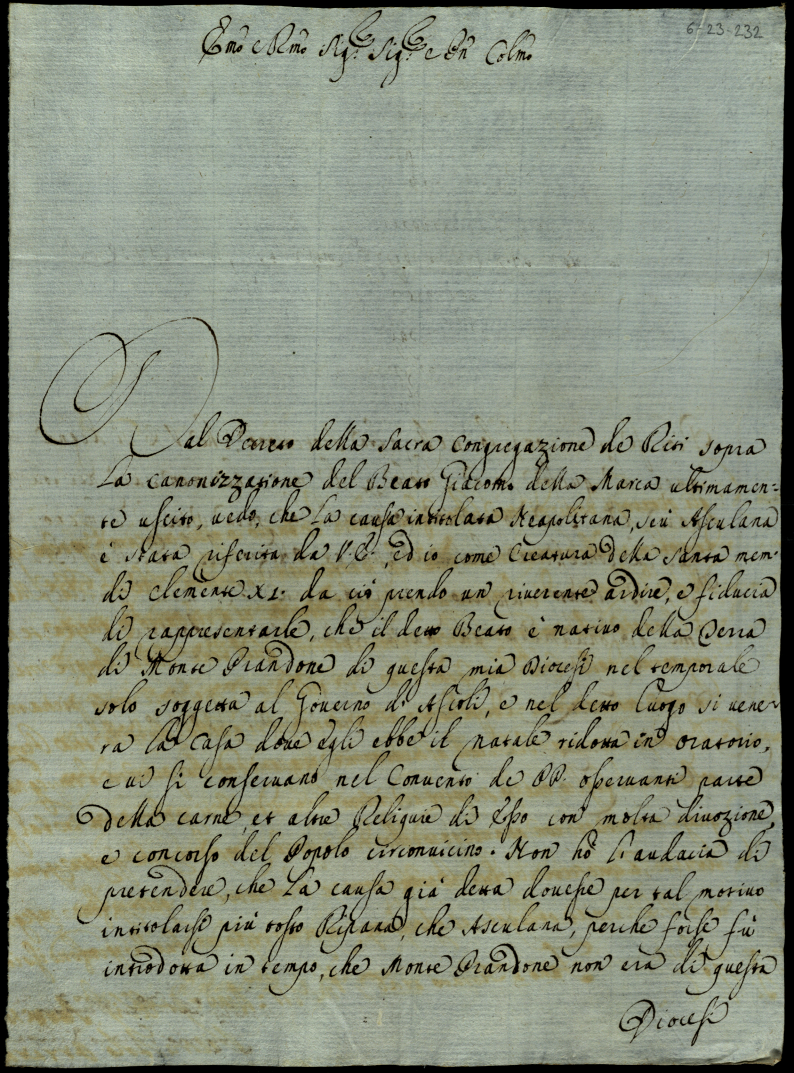 6-23-232
Em̃o e Rm̃o Sig.r Sig.r e Pñ Colm̃o
Dal Decreto della Sacra Congregazione de Riti sopra
La canonizzazione del Beato Giacomo della Marca ultimamen-
te uscito, vedo, che La causa intitolata Neapolitana, seù Asculana
è stata riferita da V.E., ed io come Creatura della Santa mem.
di Clemente XI. da ciò prendo un riverente ardire, e fiducia
di rappresentarle, che il detto Beato è nativo della Terra
di Monte Prandone di questa mia Diocesi nel temporale
solo soggetta al Governo di Ascoli, e nel detto luogo si vene-
ra la Casa dove egli ebbe il natale ridotta in oratorio,
e vi si conservano nel Convento de PP. osservanti parte
della carne, et altre Reliquie di Esso con molta divozione,
e concorso del Popolo circonvicino. Non hò l'audacia di
pretendere, che La causa già detta dovesse per tal motivo
intitolarsi più tosto Ripana, che Asculana, perche forse fù
introdotta in tempo, che Monte Prandone non era di questa
Diocesi